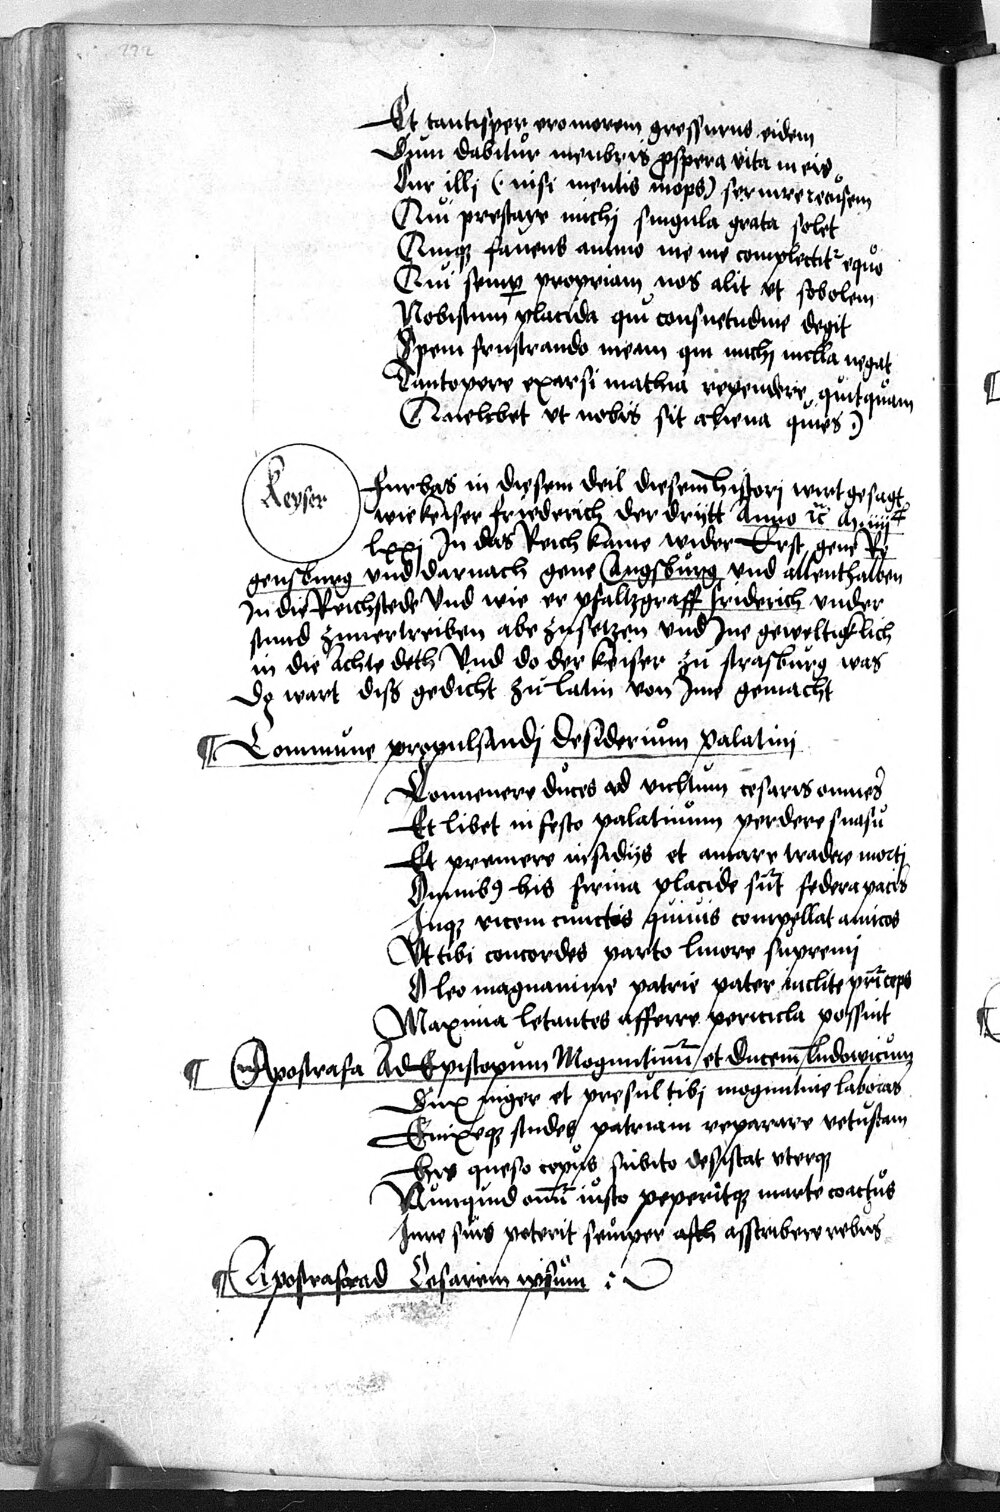 222
Et tantisper ero morem gressurus eidem
Dum dabitur menbris prospera vita meis
Cur illi ( nisi mentis inops) seruire recusem
Qui prestare michi singula grata solet
Quiqz fauens animo me me complectitr equo
Qui semp propriam nos alit vt sobolem
Nobiscum placida qui consuetudine degit
Spem frustrando meam qui michi nulla negat
Tantopere exarsi mathia rependere quitquam
Quelibet vt nobis sit aliena quies :)
Keyser
Furbas in diesem deil diesem histori wirt gesagt
wie keiser friederich der drijtt Anno
lxxj In das Reich kame wider Erst gene Re
gensburg vnd darnach gene Augsburg vnd allenthalben
In die Reichstede Vnd wie er pfaltzgraff friderich vnder
stund zuuertreiben abe zusetzen vnd Ine geweltigklich
in die Achte deth Vnd do der keiser zu strasburg was
Do wart diss gedicht zu latin von Ime gemacht
¶ Commune propulsandj desiderium palatini
Conuenere duces ad victum cesaris omnes
Et libet in festo palatinum perdere suasu
Et premere insidijs et amare tradere morti
Omnibus his firma placide sunt federa pacis
Inqz vicem cunctos quiuis compellat amicos
Vt tibi concordes parto liuore supremi
O leo magnanime patrie pater inclite princeps
Maxima letantes afferre pericula possint
¶ Apostrafa Ad Episcopum Moguntinum et Ducem ludowicum
Dux niger et presul tibi moguntine laboras
Enixeqz studes patriam reparare vetustam
his queso ceptis subito desistat vterqz
Nunquid omni iusto peperitqz marte coactus
Iure suis poterit semper asscribere rebus
¶ Apostrafa ad Cesarem ipsum :